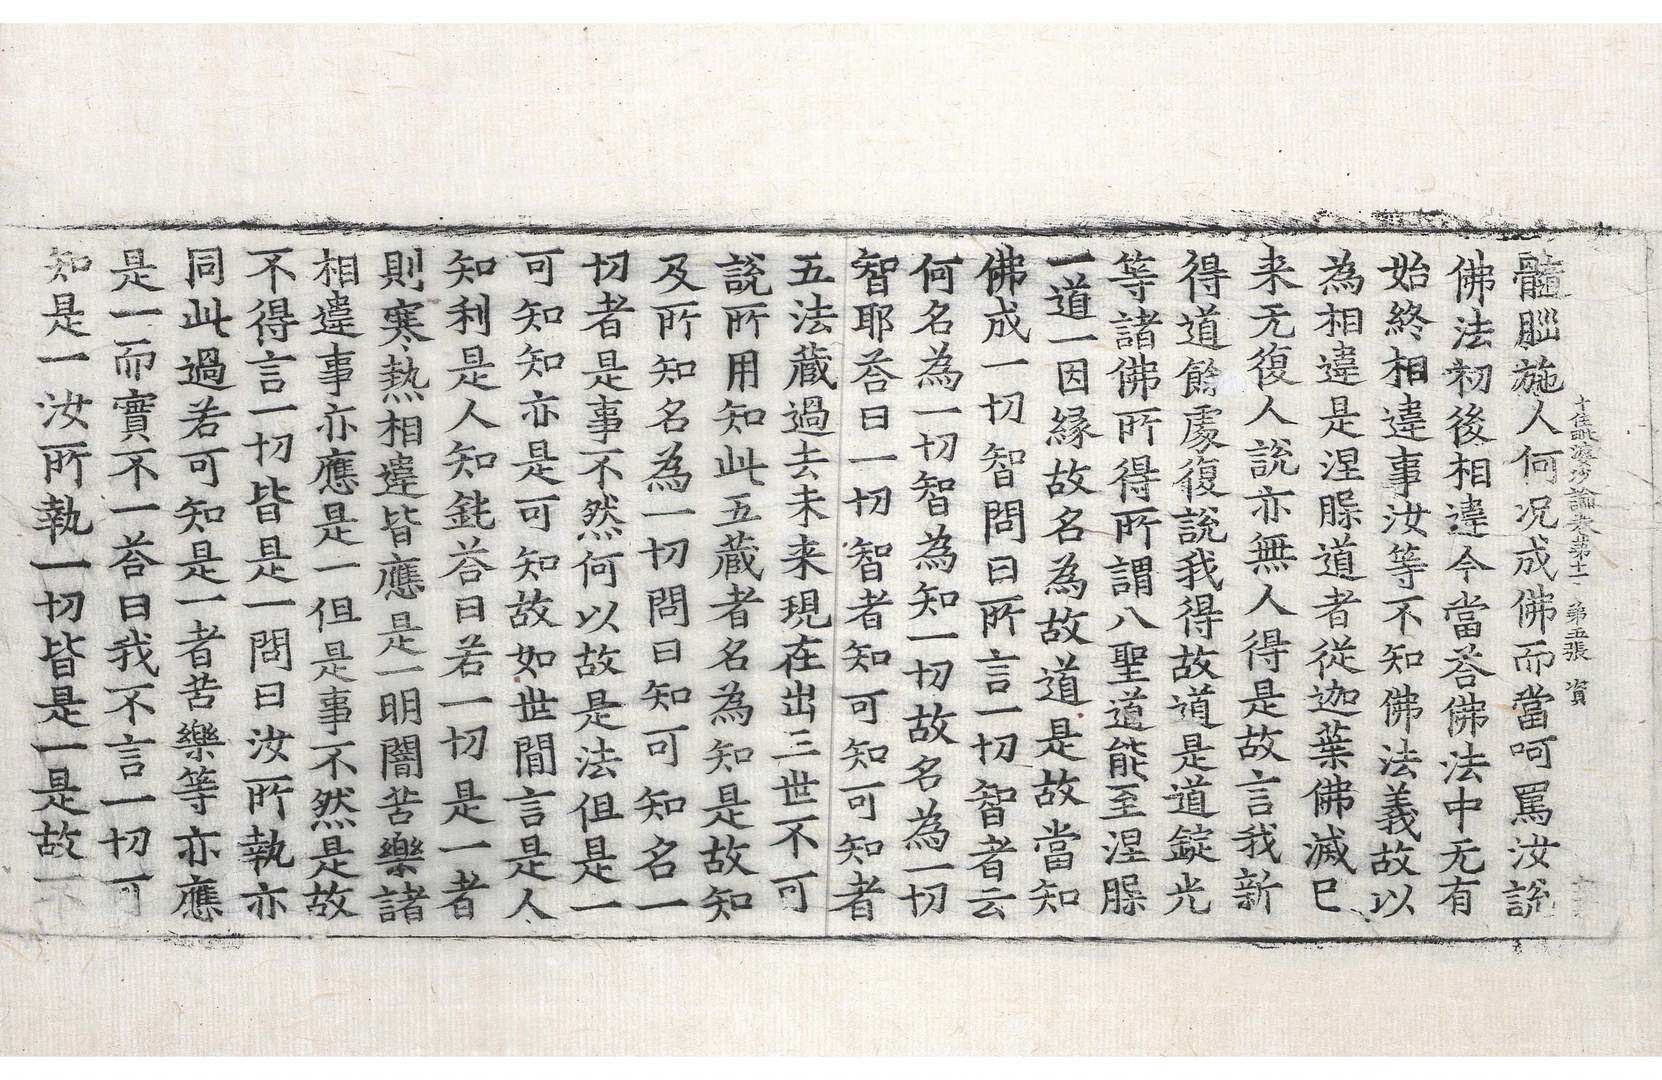 十住毗婆沙論卷第十一　第五張　資
髓腦施人何況成佛而當呵罵汝說
佛法初後相違今當荅佛法中无有
始終相違事汝等不知佛法義故以
為相違是涅槃道者從迦葉佛滅已
来无復人說亦無人得是故言我新
得道餘處復說我得故道是道錠光
等諸佛所得所謂八聖道能至涅槃
一道一因緣故名為故道是故當知
佛成一切智問曰所言一切智者云
何名為一切智為知一切故名為一切
智耶荅曰一切智者知可知可知者
五法藏過去未来現在出三世不可
說所用知此五藏者名為知是故知
及所知名為一切問曰知可知名一
切者是事不然何以故是法但是一
可知知亦是可知故如世閒言是人
知利是人知鈍荅曰若一切是一者
則寒熱相違皆應是一明闇苦樂諸
相違事亦應是一但是事不然是故
不得言一切皆是一問曰汝所執亦
同此過若可知是一者苦樂等亦應
是一而實不一荅曰我不言一切可
知是一汝所執一切皆是一是故不